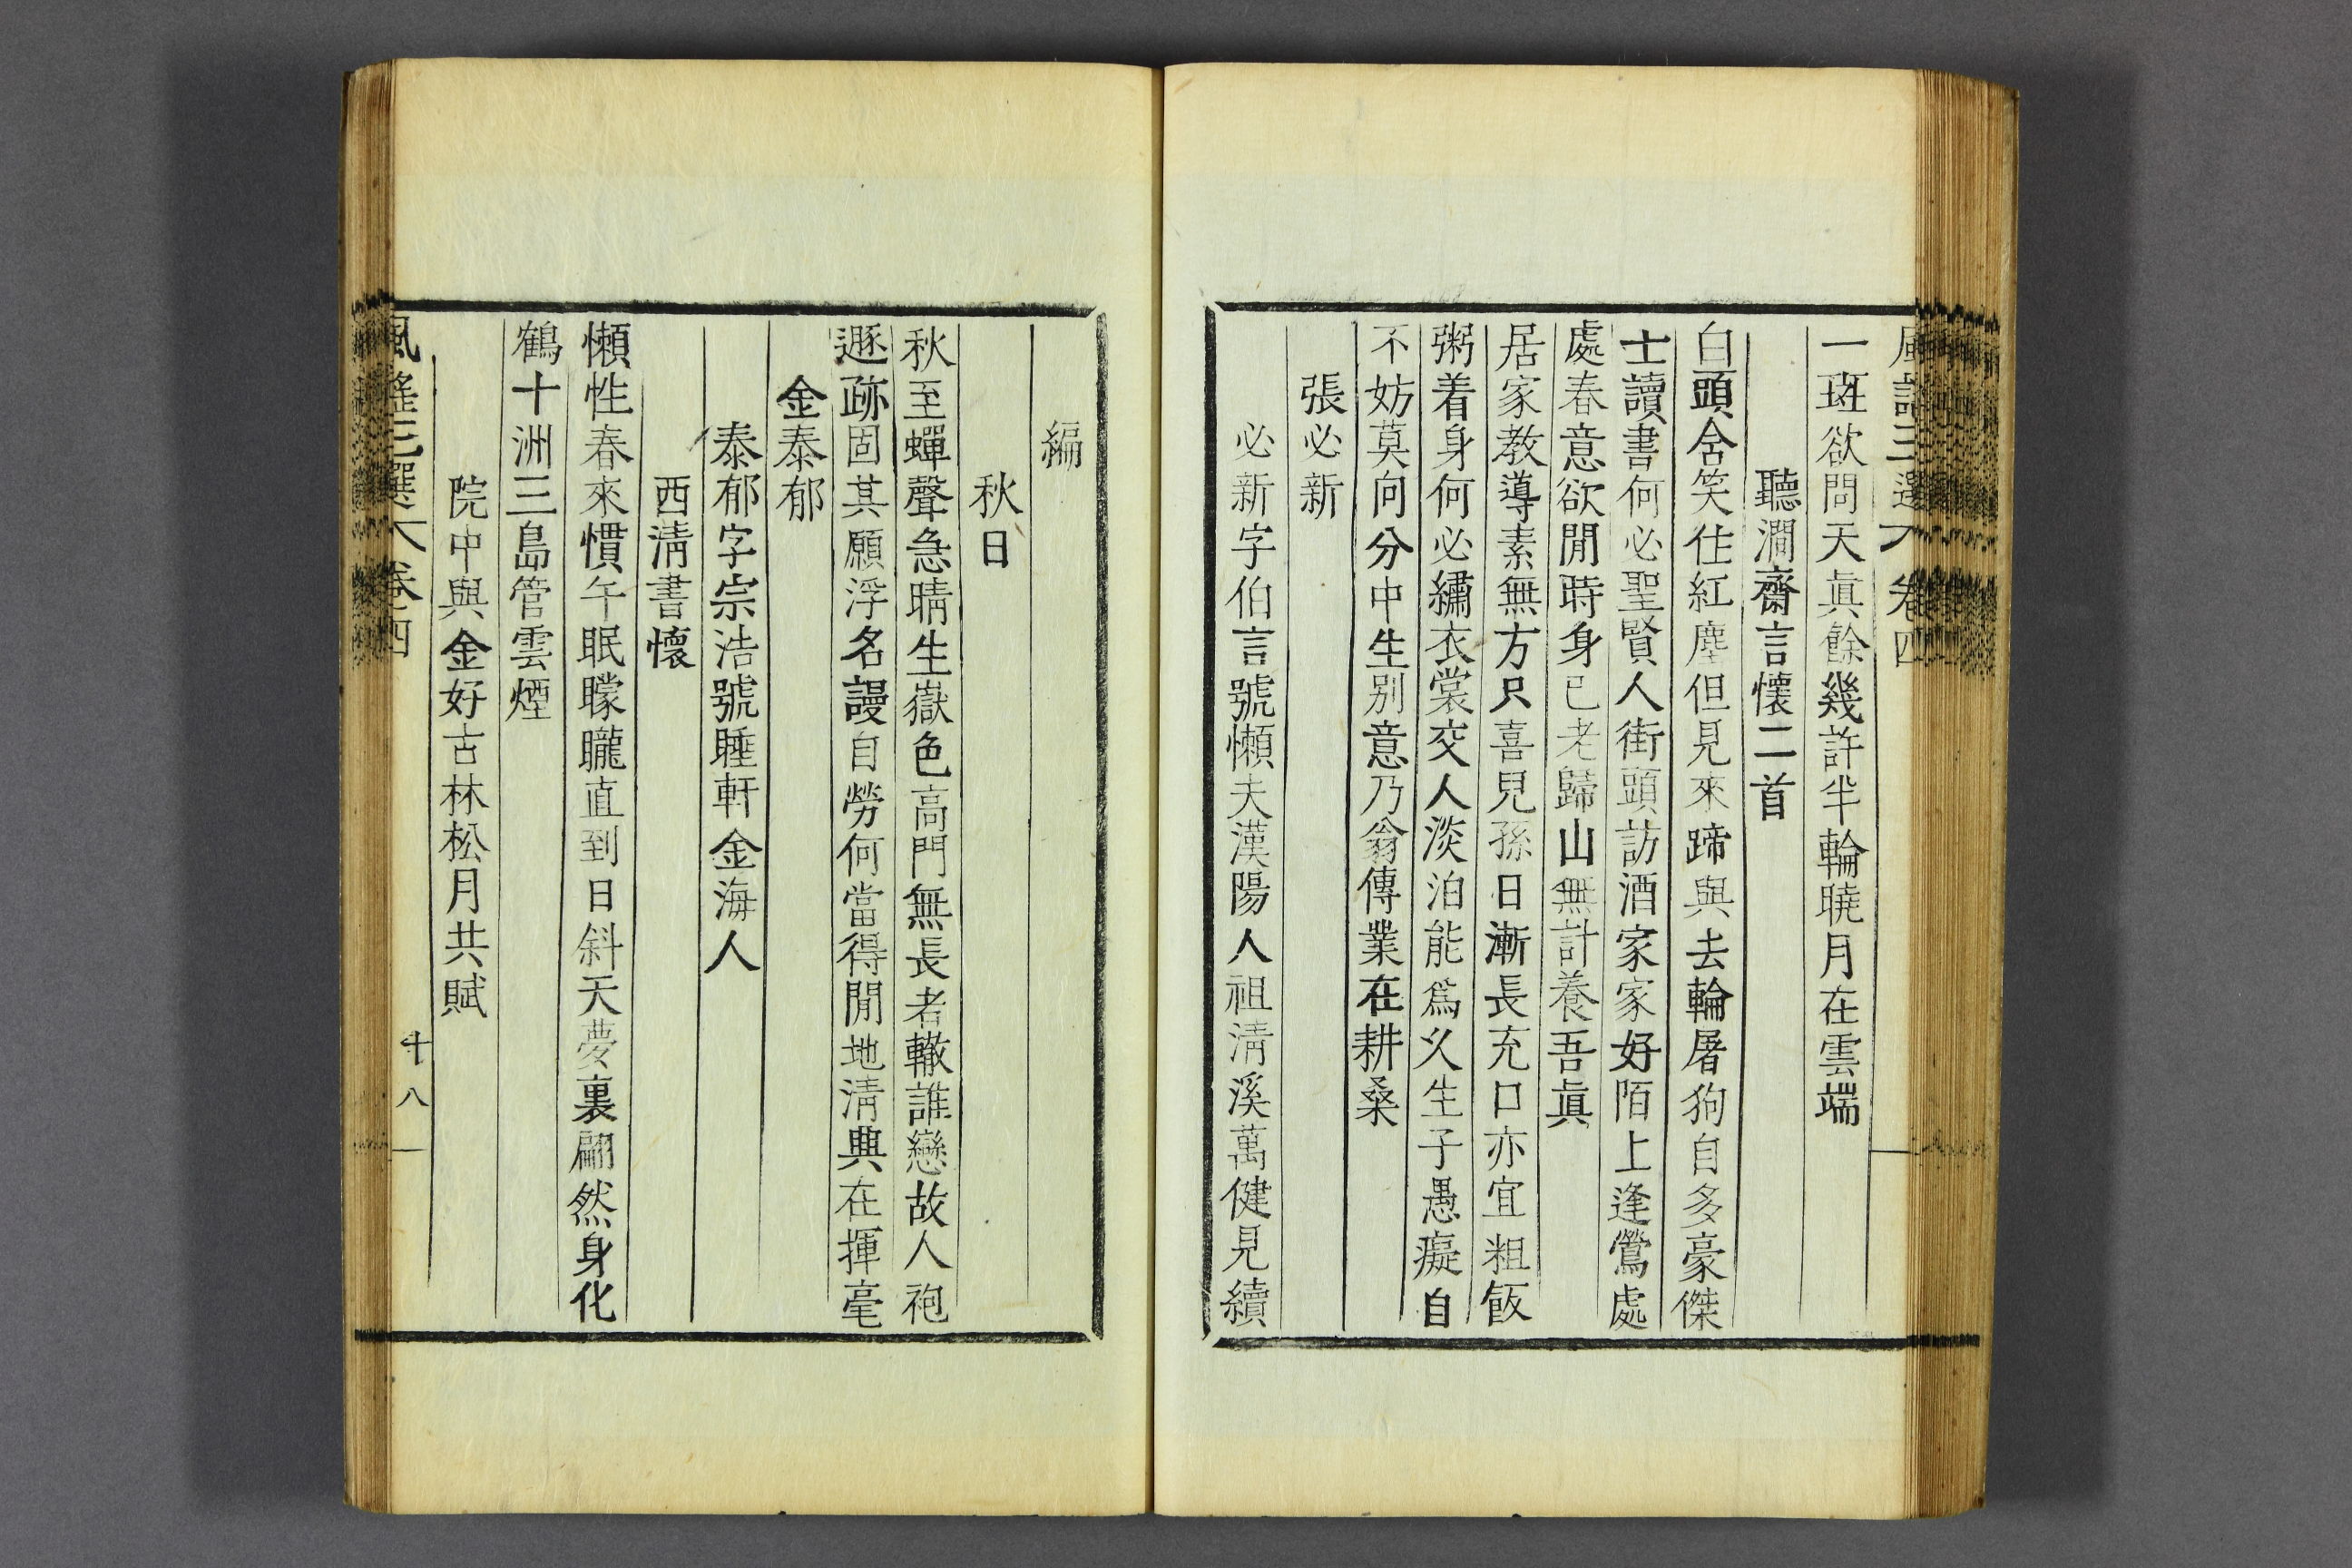 風謠三選 卷四
一斑欲問天眞餘幾許半輪曉月在雲端
聽澗齋言懷二首
白頭含笑住紅塵但見來蹄與去輪屠狗自多豪傑
士讀書何必聖賢人街頭訪酒家家好陌上逢鶯處
處春意欲閒時身已老歸山無計養吾眞
居家教導素無方只喜兒孫日漸長充口亦宜粗飯
粥着身何必繡衣裳交人淡泊能爲久生子愚癡自
不妨莫向分中生別意乃翁傳業在耕桑
張必新
必新字伯言號懶夫漢陽人祖淸溪萬健見續
編
秋日
秋至蟬聲急晴生嶽色高門無長者轍誰戀故人袍
遯跡固其願浮名謾自勞何當得閒地淸興在揮毫
金泰郁
泰郁字宗浩號睡軒金海人
西淸書懷
懶性春來慣午眠矇矓直到日斜天夢裏翩然身化
鶴十洲三島管雲煙
院中與金好古林松月共賦
風謠三選 卷四 十八